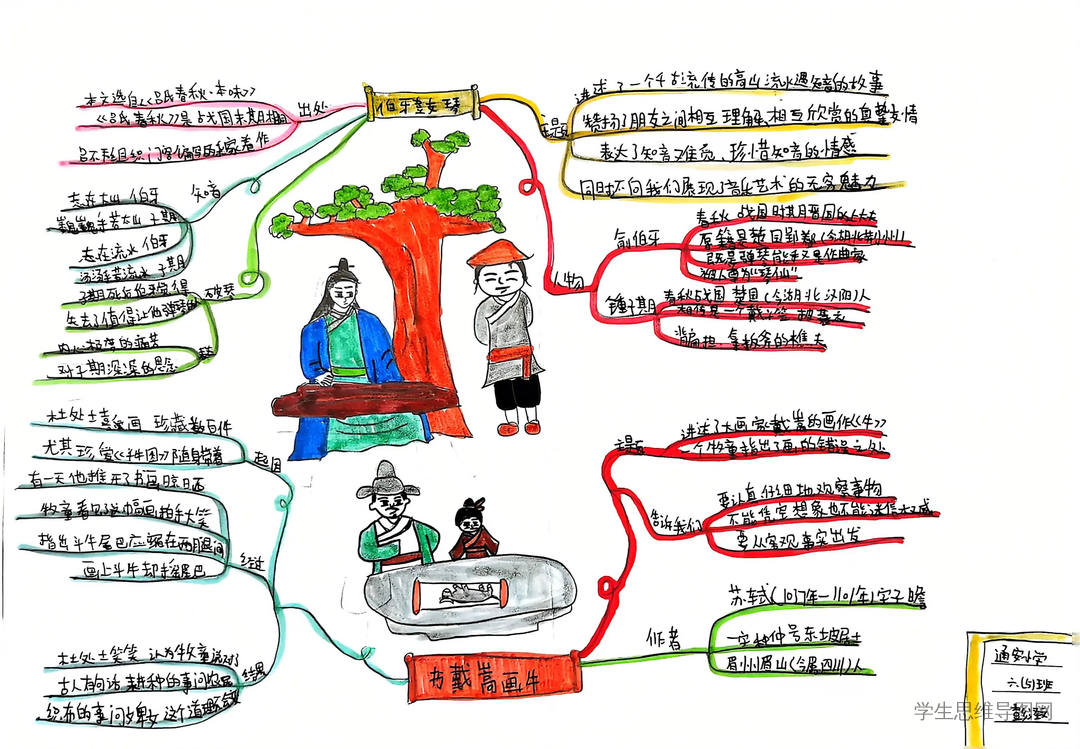 伯牙鼓琴
出处
本文选自《吕氏春秋·本味》
《吕氏春秋》是战国末期相
吕不韦组织门客编写的
著作
知音
志在太山 伯牙
巍巍乎若太山 子期
志在流水 伯牙
汤汤乎若流水 子期
破琴
子期死后伯牙觉得
失去了值得让他弹琴的
内心极度的痛苦
对子期深深的思念
主题
讲述了一个千古流传的高山流水遇知音的故事
赞扬了朋友之间相互理解、相互欣赏的真挚友情
表达了知音难觅，珍惜知音的情感
同时环向我们展现了音乐艺术的无穷魅力
人物
俞伯牙
春秋战国时期晋国的上大夫
原籍是楚国郢都(今湖北荆州)
既是弹琴能手又是作曲家
被人尊为"琴仙"
鍾子期
春秋战国 楚国(今湖北汉阳)人
相传是一个戴斗笠 披蓑衣
背扁担 拿板斧的樵夫
书戴嵩画牛
起因
杜处士喜爱书画 珍藏数百件
尤其珍爱《斗牛图》随身带着
经过
有一天他推开了书画晾日晒
牧童看见这幅画拍手大笑
指出斗牛尾巴应缩在两腿间
画上斗牛却摇尾巴
结果
杜处士笑笑 认为牧童说对了
古人有句话 耕种的事问农民
织布的事问婢女 这个道理不会变
主题
讲述了大画家戴嵩的画作《牛》
一个牧童指出了画的错误之处
告诉我们
要认真仔细地观察事物
不能凭空想象也不能迷信权威
要从客观事实出发
作者
苏轼(1037年—1101年)字子瞻
一字和仲号东坡居士
眉州眉山(今属四川)人
通安小学
六(5)班
学生思维导图网